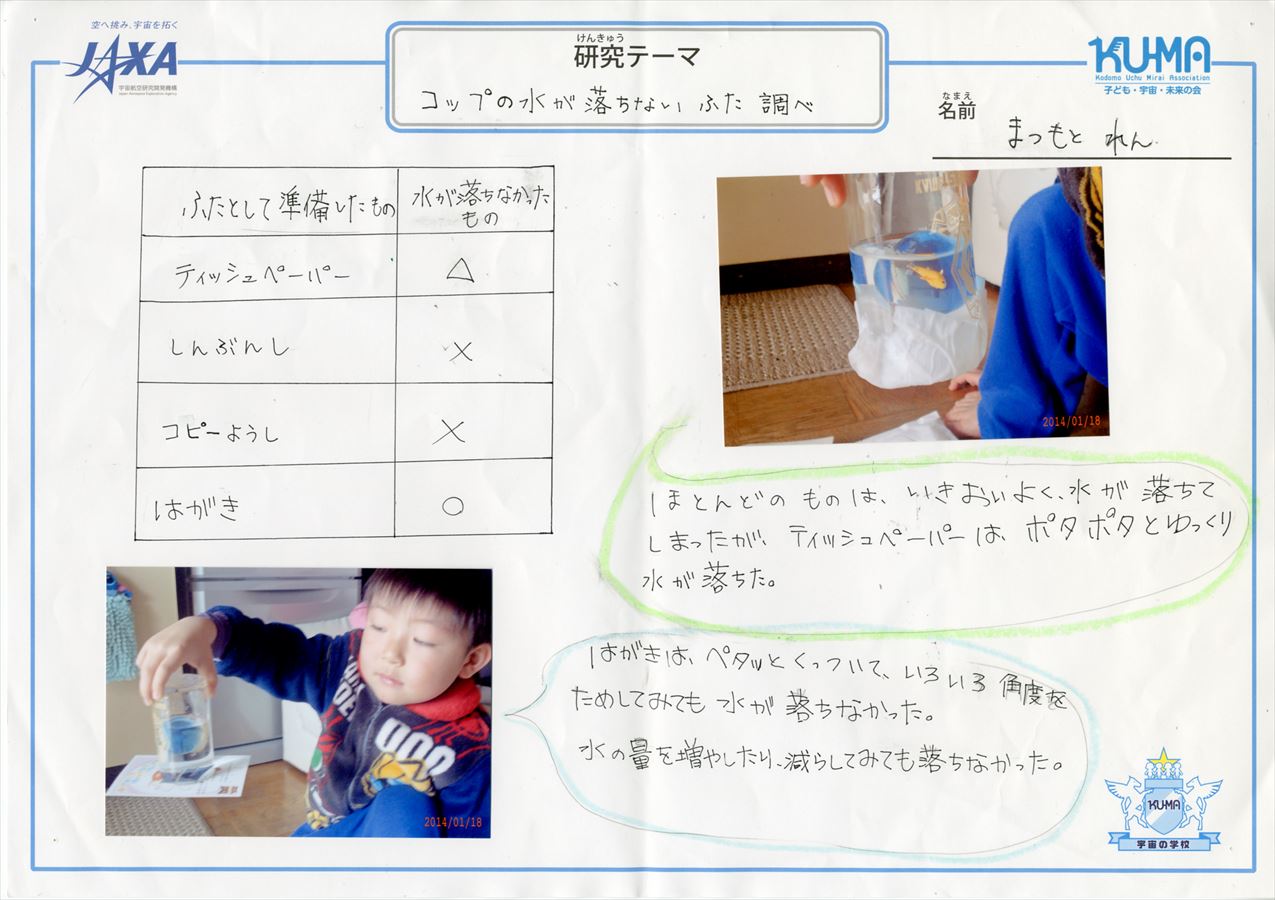 空へ挑み、宇宙を拓く
JAXA
宇宙航空研究開発機構
Japan Aerospace Exploration Agency
けんきゅう
研究テーマ
コップの水が落ちない ふた 調べ
KU-MA
Kodomo Uchu Mirai Association
子ども・宇宙・未来の会
なまえ
名前
まつもと れん
ふたとして準備したもの
水が落ちなかった
もの
ティッシュペーパー
△
しんぶんし
×
コピーようし
×
はがき
○
2014/01/18
ほとんどの ものは、いきおいよく、水が 落ちて
しまったが、ティッシュペーパーは、ポタポタとゆっくり
水が落ちた。
はがきは、ペタッとくっついて、いろいろ 角度を
ためしてみても 水が 落ちなかった。
水の量を増やしたり、減らしてみても落ちなかった。
UNO
2014/01/18
KU-MA
宇宙の学校